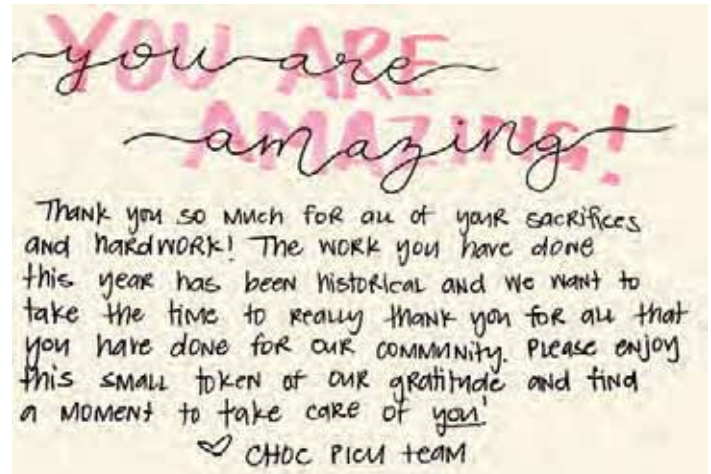 you are
amazing!
Thank you so much for all of your sacrifices
and hardwork! The work you have done
this year has been historical and we want to
take the time to really thank you for all that
you have done for our community. Please enjoy
this small token of our gratitude and find
a moment to take care of you!
♡ CHOC PICU team